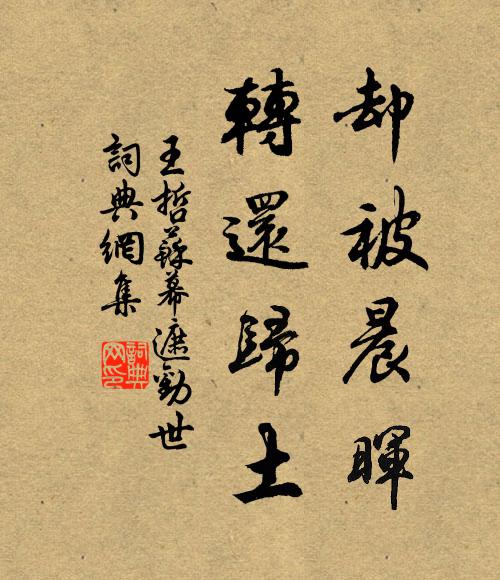 却被晨暉
轉還歸土
王哲蘇幕遮勸世
詞典網集
詞典
网印